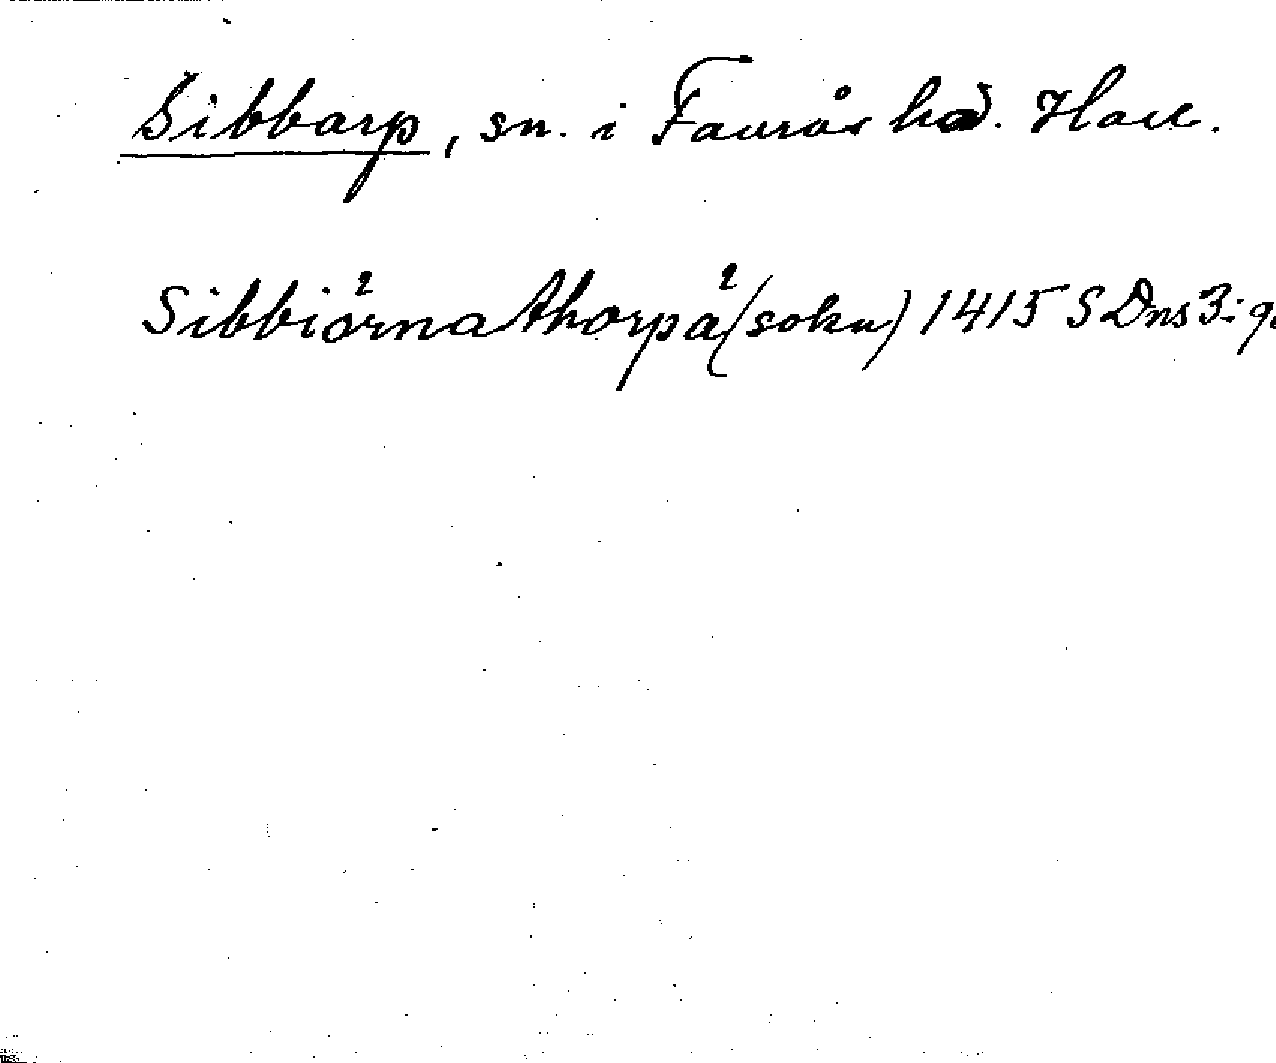 Sibbarp, sn. i Faurås hd. Hall.
Sibbiörnathorpa (sokn) 1415 SDns 3: